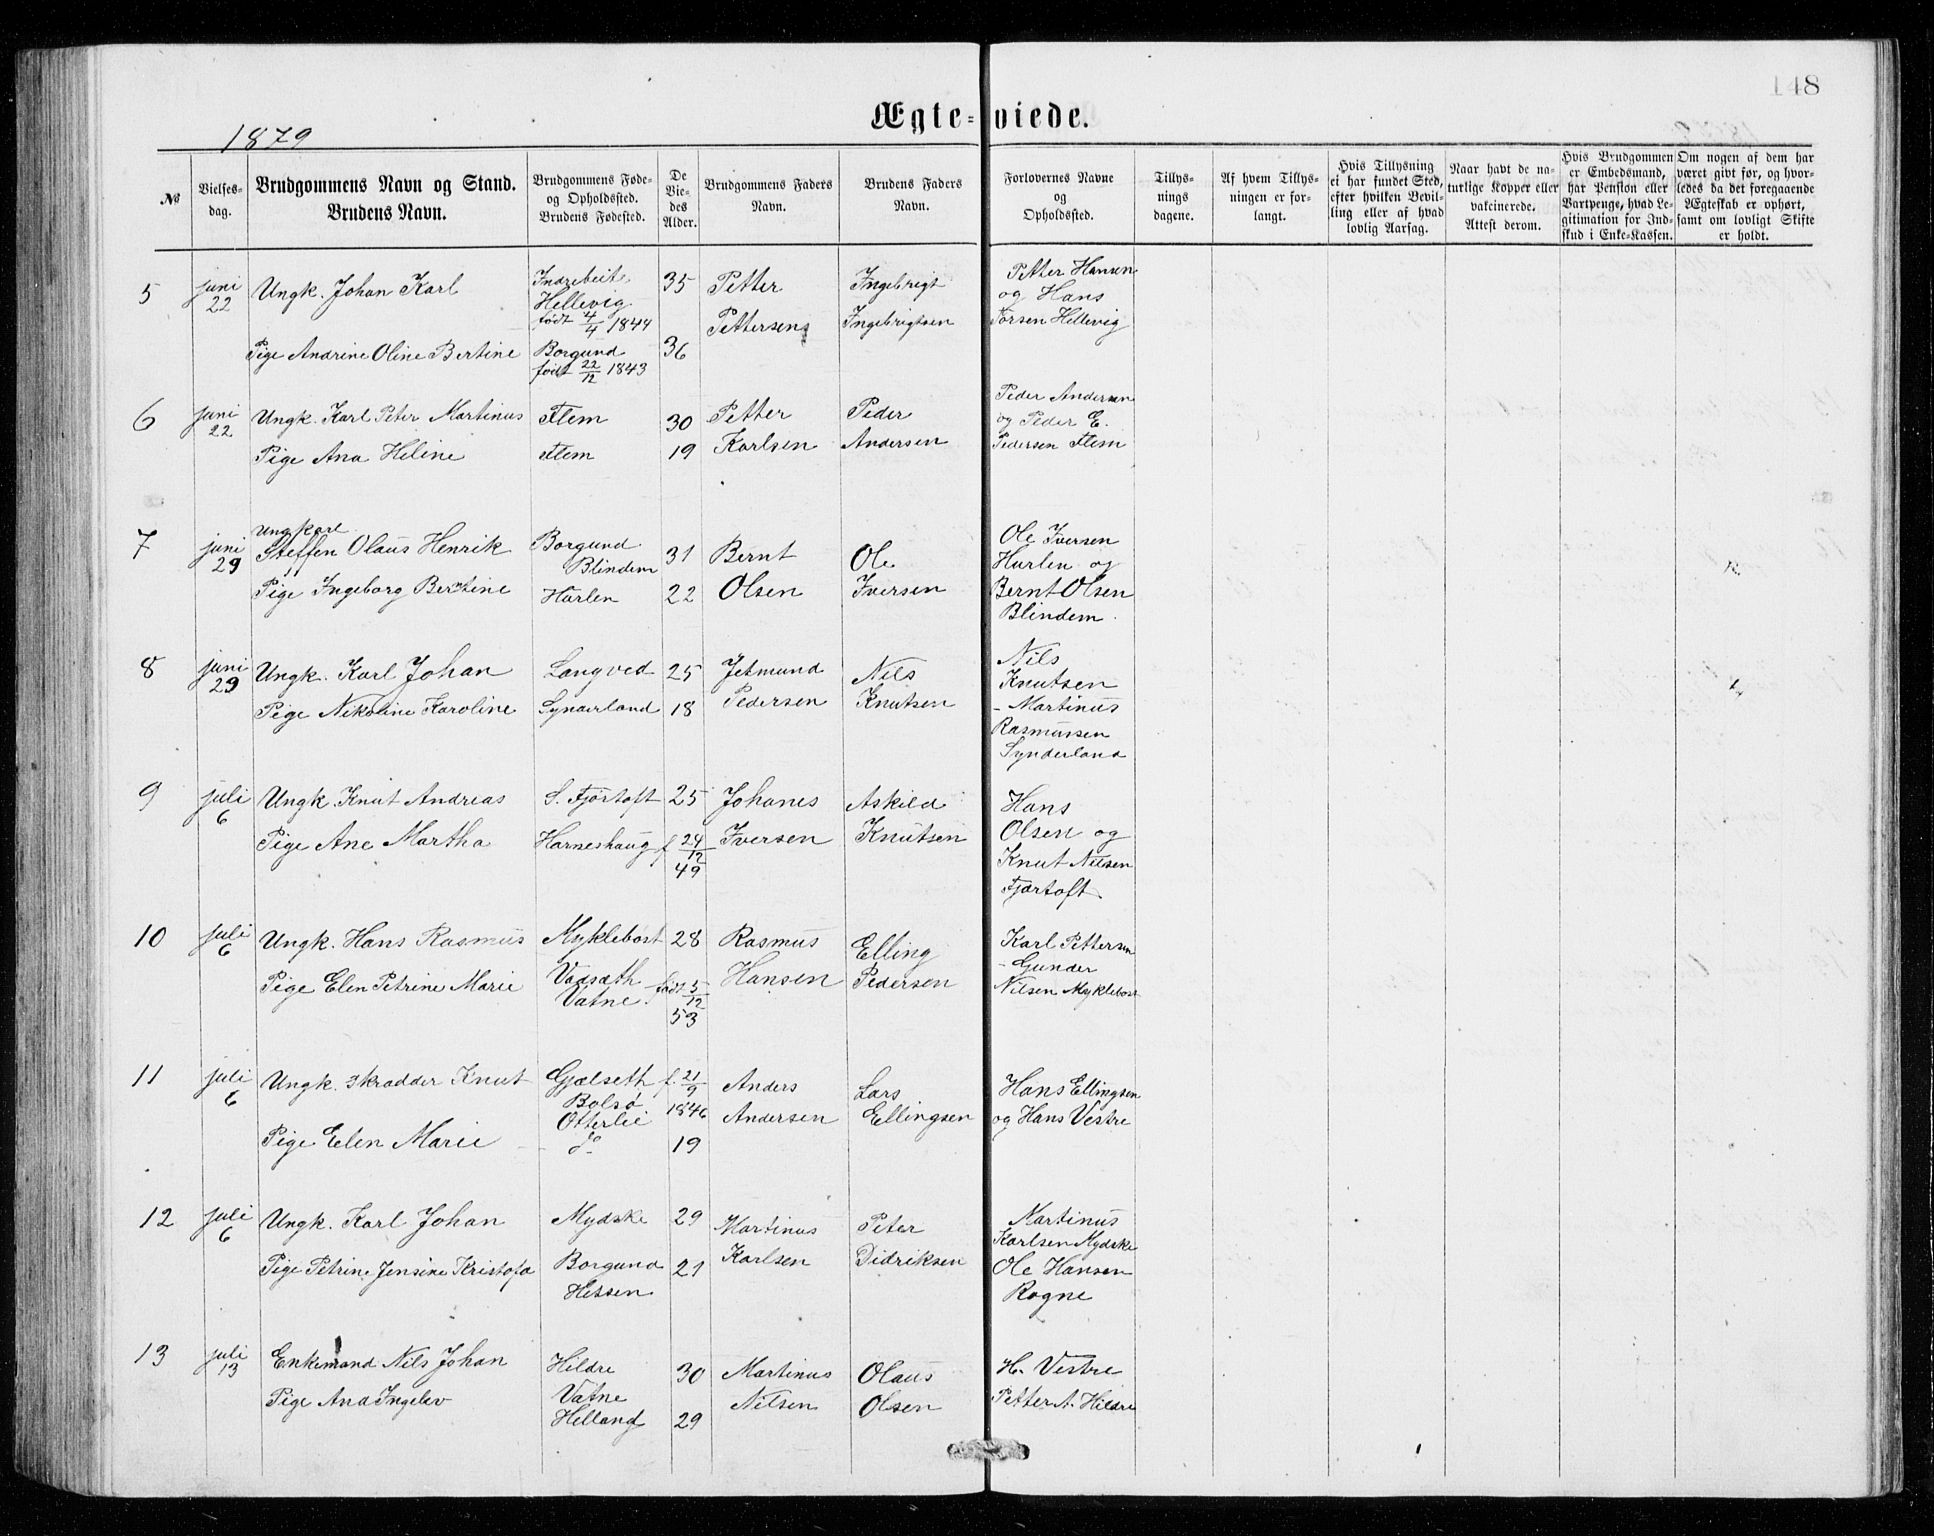 148
Ægte-viede.
1879
№
Vielses-
dag.
Brudgommens Navn og Stand.
Brudens Navn.
Brudgommens Føde-
og Opholdssted.
Brudens Fødested.
De
Vie-
des
Alder.
Brudgommens Faders
Navn.
Brudens Faders
Navn.
Forlovernes Navne
og
Opholdssted.
Tillys-
nings
dagene.
Af hvem Tillys-
ningen er for-
langt.
Hvis Tillysning
ei har fundet Sted,
efter hvilken Bevil-
ling eller af hvad
lovlig Aarsag.
Naar havt de na-
turlige Kopper eller
vakcinerede.
Attest derom.
Hvis Brudgommen
er Embedsmand,
har Pension eller
Vartpenge, hvad Le-
gitimation for Ind-
skud i Enke-Kassen.
Om nogen af dem har
været givt før, og hvor-
ledes da det foregaaende
Ægteskab er ophørt,
samt om lovligt Skifte
er holdt.
5
juni
22
Ungk. Johan Karl
Pige Andrine Oline Bertine
Indrebeite
Hellevig
født 4/4 1844
Borgund
født 22/12 1843
35
36
Petter
Pettersens
Ingebrigt
Ingebrigtsen
Petter Hansen
og Hans
Torsen Hellevig
6
juni
22
Ungk. Karl Peter Martinus
Pige Ana Heline
Flem
Flem
30
19
Petter
Karlsen
Peder
Andersen
Peder Andersen
og Peder E.
Pedersen Flem
7
juni
29
Ungkarl
Steffen Olaus Henrik
Pige Ingeborg Bertine
Borgund
Blindem
Hurlen
31
22
Bernt
Olsen
Ole
Iversen
Ole Iversen
Hurlen og
Bernt Olsen
Blindem
8
juni
29
Ungk. Karl Johan
Pige Nikoline Karoline
Longved
Synderland
25
18
Jetmund
Pedersen
Nils
Knutsen
Nils
Knutsen
- Martinus
Rasmussen
Synderland
9
juli
6
Ungk. Knut Andreas
Pige Ane Martha
S. Fjørtoft
Harneshaug
25
f 24/12
49
Johanes
Iversen
Askild
Knutsen
Hans
Olsen og
Knut Nilsen
Fjørtoft
10
juli
6
Ungk. Hans Rasmus
Pige Elen Petrine Marie
Myklebost
Vadsæth
Vatne
28
født 5/12
53
Rasmus
Hansen
Elling
Pedersen
Karl Pettersen
- Gunder
Nilsen Myklebost
11
juli
6
Ungk. skrædder Knut
Pige Elen Marie
Gjelseth
Bolsø
Otterlei
do
f. 21/9
1846
19
Anders
Andersen
Lars
Ellingsen
Hans Ellingsen
og Hans Vestre
12
juli
6
Ungk. Karl Johan
Pige Petrine Jensine Kristofa
Mydske
Borgund
Hessen
29
21
Martinus
Karlsen
Peter
Didriksen
Martinus
Karlsen Mydske
Ole Hansen
Rogne
13
juli
13
Enkemand Nils Johan
Pige Ana Ingelev
Hildre
Vatne
Helland
30
29
Martinus
Nilsen
Olaus
Olsen
H. Vestre
Petter A. Hildre